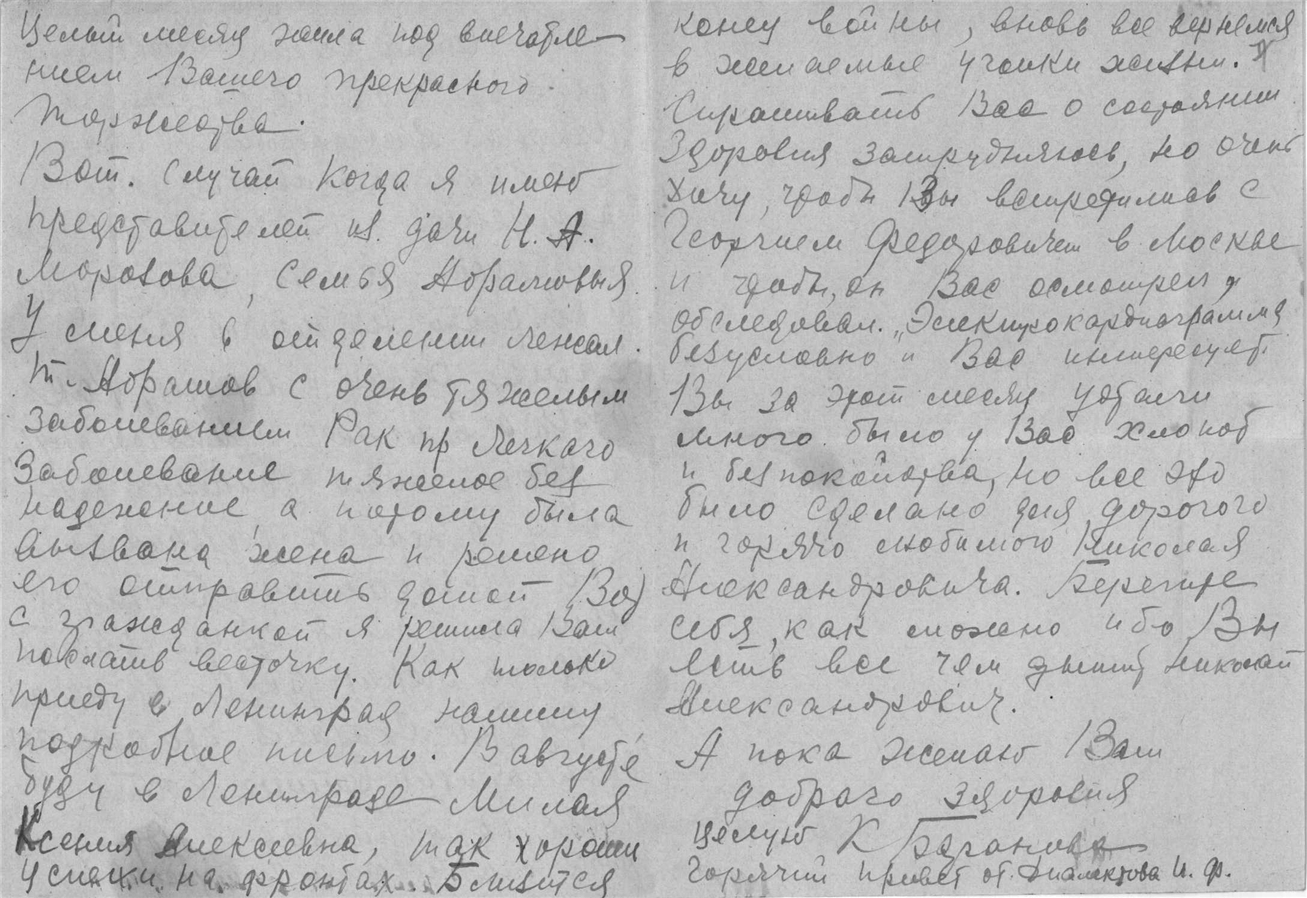 Целый месяц жила под впечатле-
нием Вашего прекрасного
торжества.
Вот. Случай когда я имею
представителей из. дачи Н.А.
Морозова, семья Абрамовых
У меня в отделении лежал.
т. Абрамов с очень тяжелым
заболеванием Рак пр легкого
Заболевание тяжелое без
надежное, а потому была
вызвана жена и решено
его отправить домой Вот
с гражданкой я решила Вам
послать весточку. Как только
приеду в Ленинград напишу
подробное письмо. В августе
буду в Ленинграде Милая
Ксения Алексеевна, так хороши
успехи на фронтах. Близится
конец войны, вновь все вернемся
в желаемые уголки жизни.
Спрашивать Вас о состоянии
Здоровия затрудняюсь, но очень
хочу, чтобы Вы встретились с
Георгием Федоровичем в Москве
и чтобы, он Вас осмотрел и
обследовал. „Элекидокардиограмма
безусловно и Вас интересует.
Вы за этот месяц устали
много было у Вас хлопот
и безпокойства, но все это
было сделано для дорогого
и горячо любимого Николая
Александровича. Берегите
себя, как можно ибо Вы
есть все чем дышит Николай
Александрович.
А пока желаю Вам
доброго здоровия
целую К Баранова
Горячий привет от. Диалектова И. Ф.